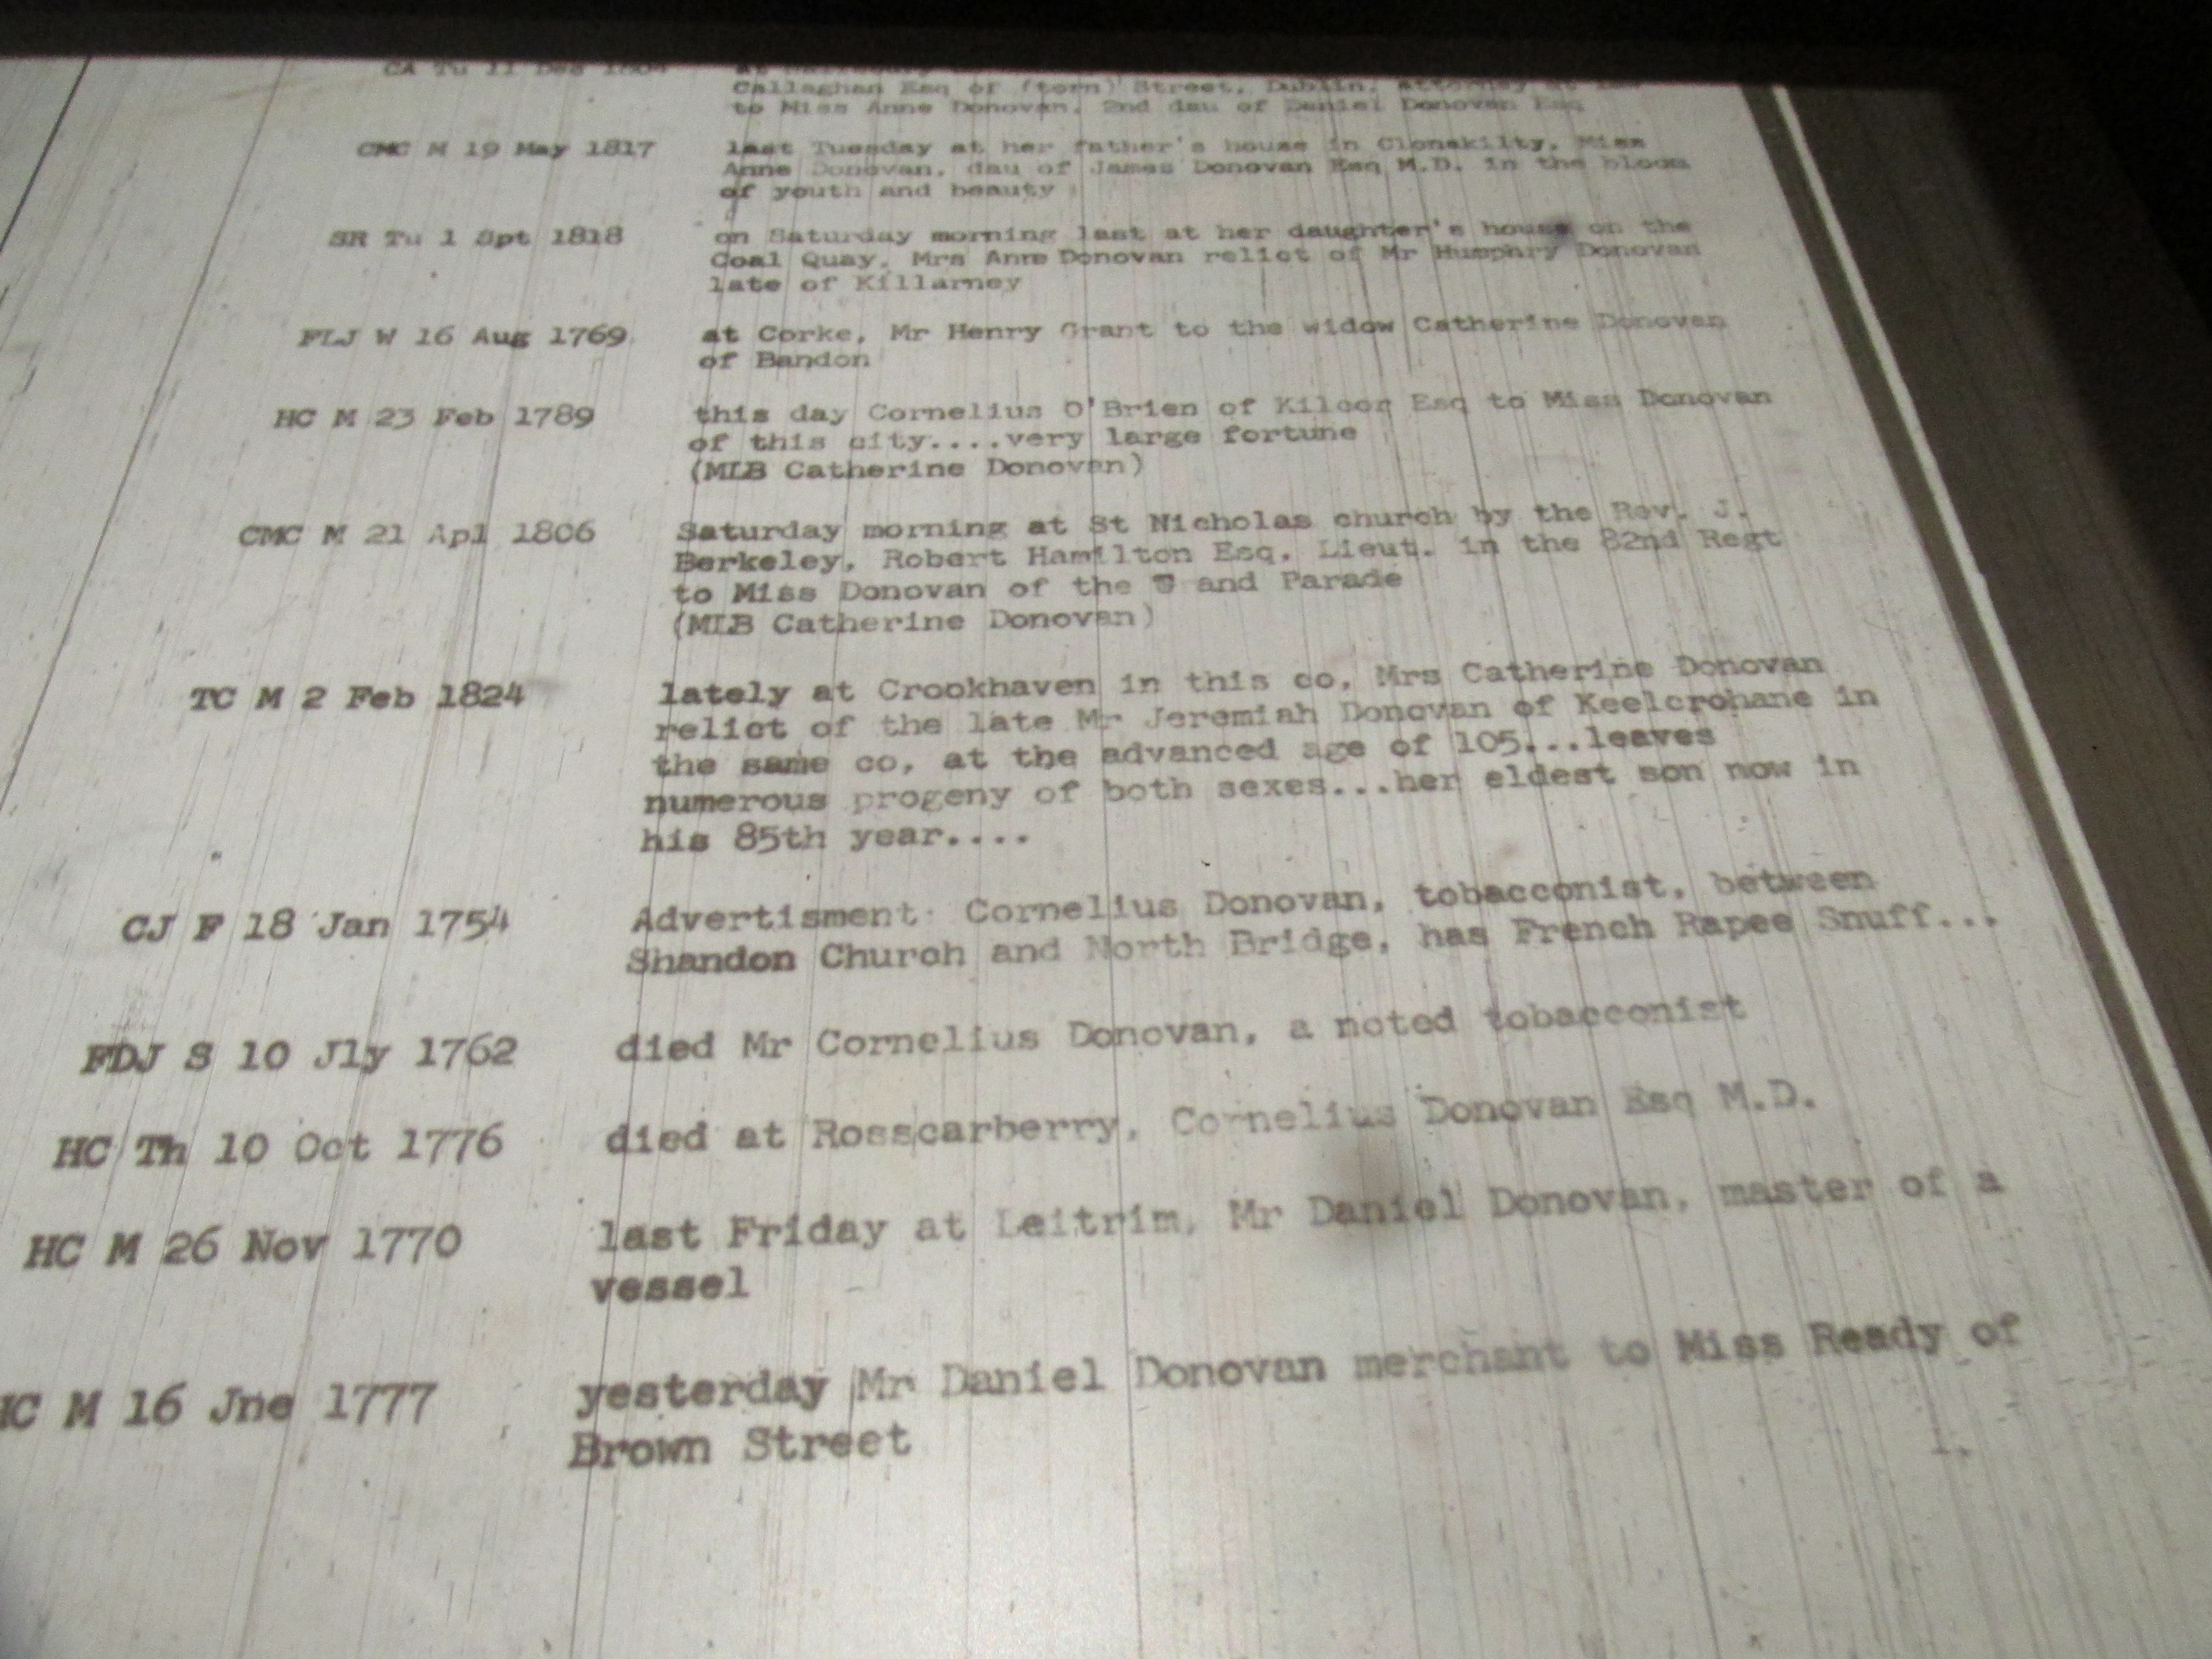 CA Tu 11 Dec
Callaghan Esq of (torn) Street, Dublin, attorney at
to Miss Anne Donovan, 2nd dau of Daniel Donovan Esq
CMC M 19 May 1817 last Tuesday at her father's house in Clonakilty, Miss
Anne Donovan, dau of James Donovan Esq M.D. in the bloom
of youth and beauty
SR Tu 1 Spt 1818 on Saturday morning last at her daughter's house on the
Coal Quay, Mrs Anne Donovan relict of Mr Humphry Donovan
late of Killarney
FLJ W 16 Aug 1769 at Corke, Mr Henry Grant to the widow Catherine Donovan
of Bandon
HC M 23 Feb 1789 this day Cornelius O'Brien of Kilcor Esq to Miss Donovan
of this city....very large fortune
(MLB Catherine Donovan)
CMC M 21 Apl 1806 Saturday morning at St Nicholas church by the Rev. J.
Berkeley, Robert Hamilton Esq. Lieut. in the 82nd Regt
to Miss Donovan of the and Parade
(MLB Catherine Donovan)
TC M 2 Feb 1824 lately at Crookhaven in this co, Mrs Catherine Donovan
relict of the late Mr Jeremiah Donovan of Keelcrohane in
the same co, at the advanced age of 105...leaves
numerous progeny of both sexes...her eldest son now in
his 85th year....
CJ F 18 Jan 1754 Advertisment: Cornelius Donovan, tobacconist, between
Shandon Church and North Bridge, has French Rapee Snuff...
FDJ S 10 Jly 1762 died Mr Cornelius Donovan, a noted tobacconist
HC Th 10 Oct 1776 died at Rosscarberry, Cornelius Donovan Esq M.D.
HC M 26 Nov 1770 last Friday at Leitrim, Mr Daniel Donovan, master of a
vessel
HC M 16 Jne 1777 yesterday Mr Daniel Donovan merchant to Miss Ready of
Brown Street